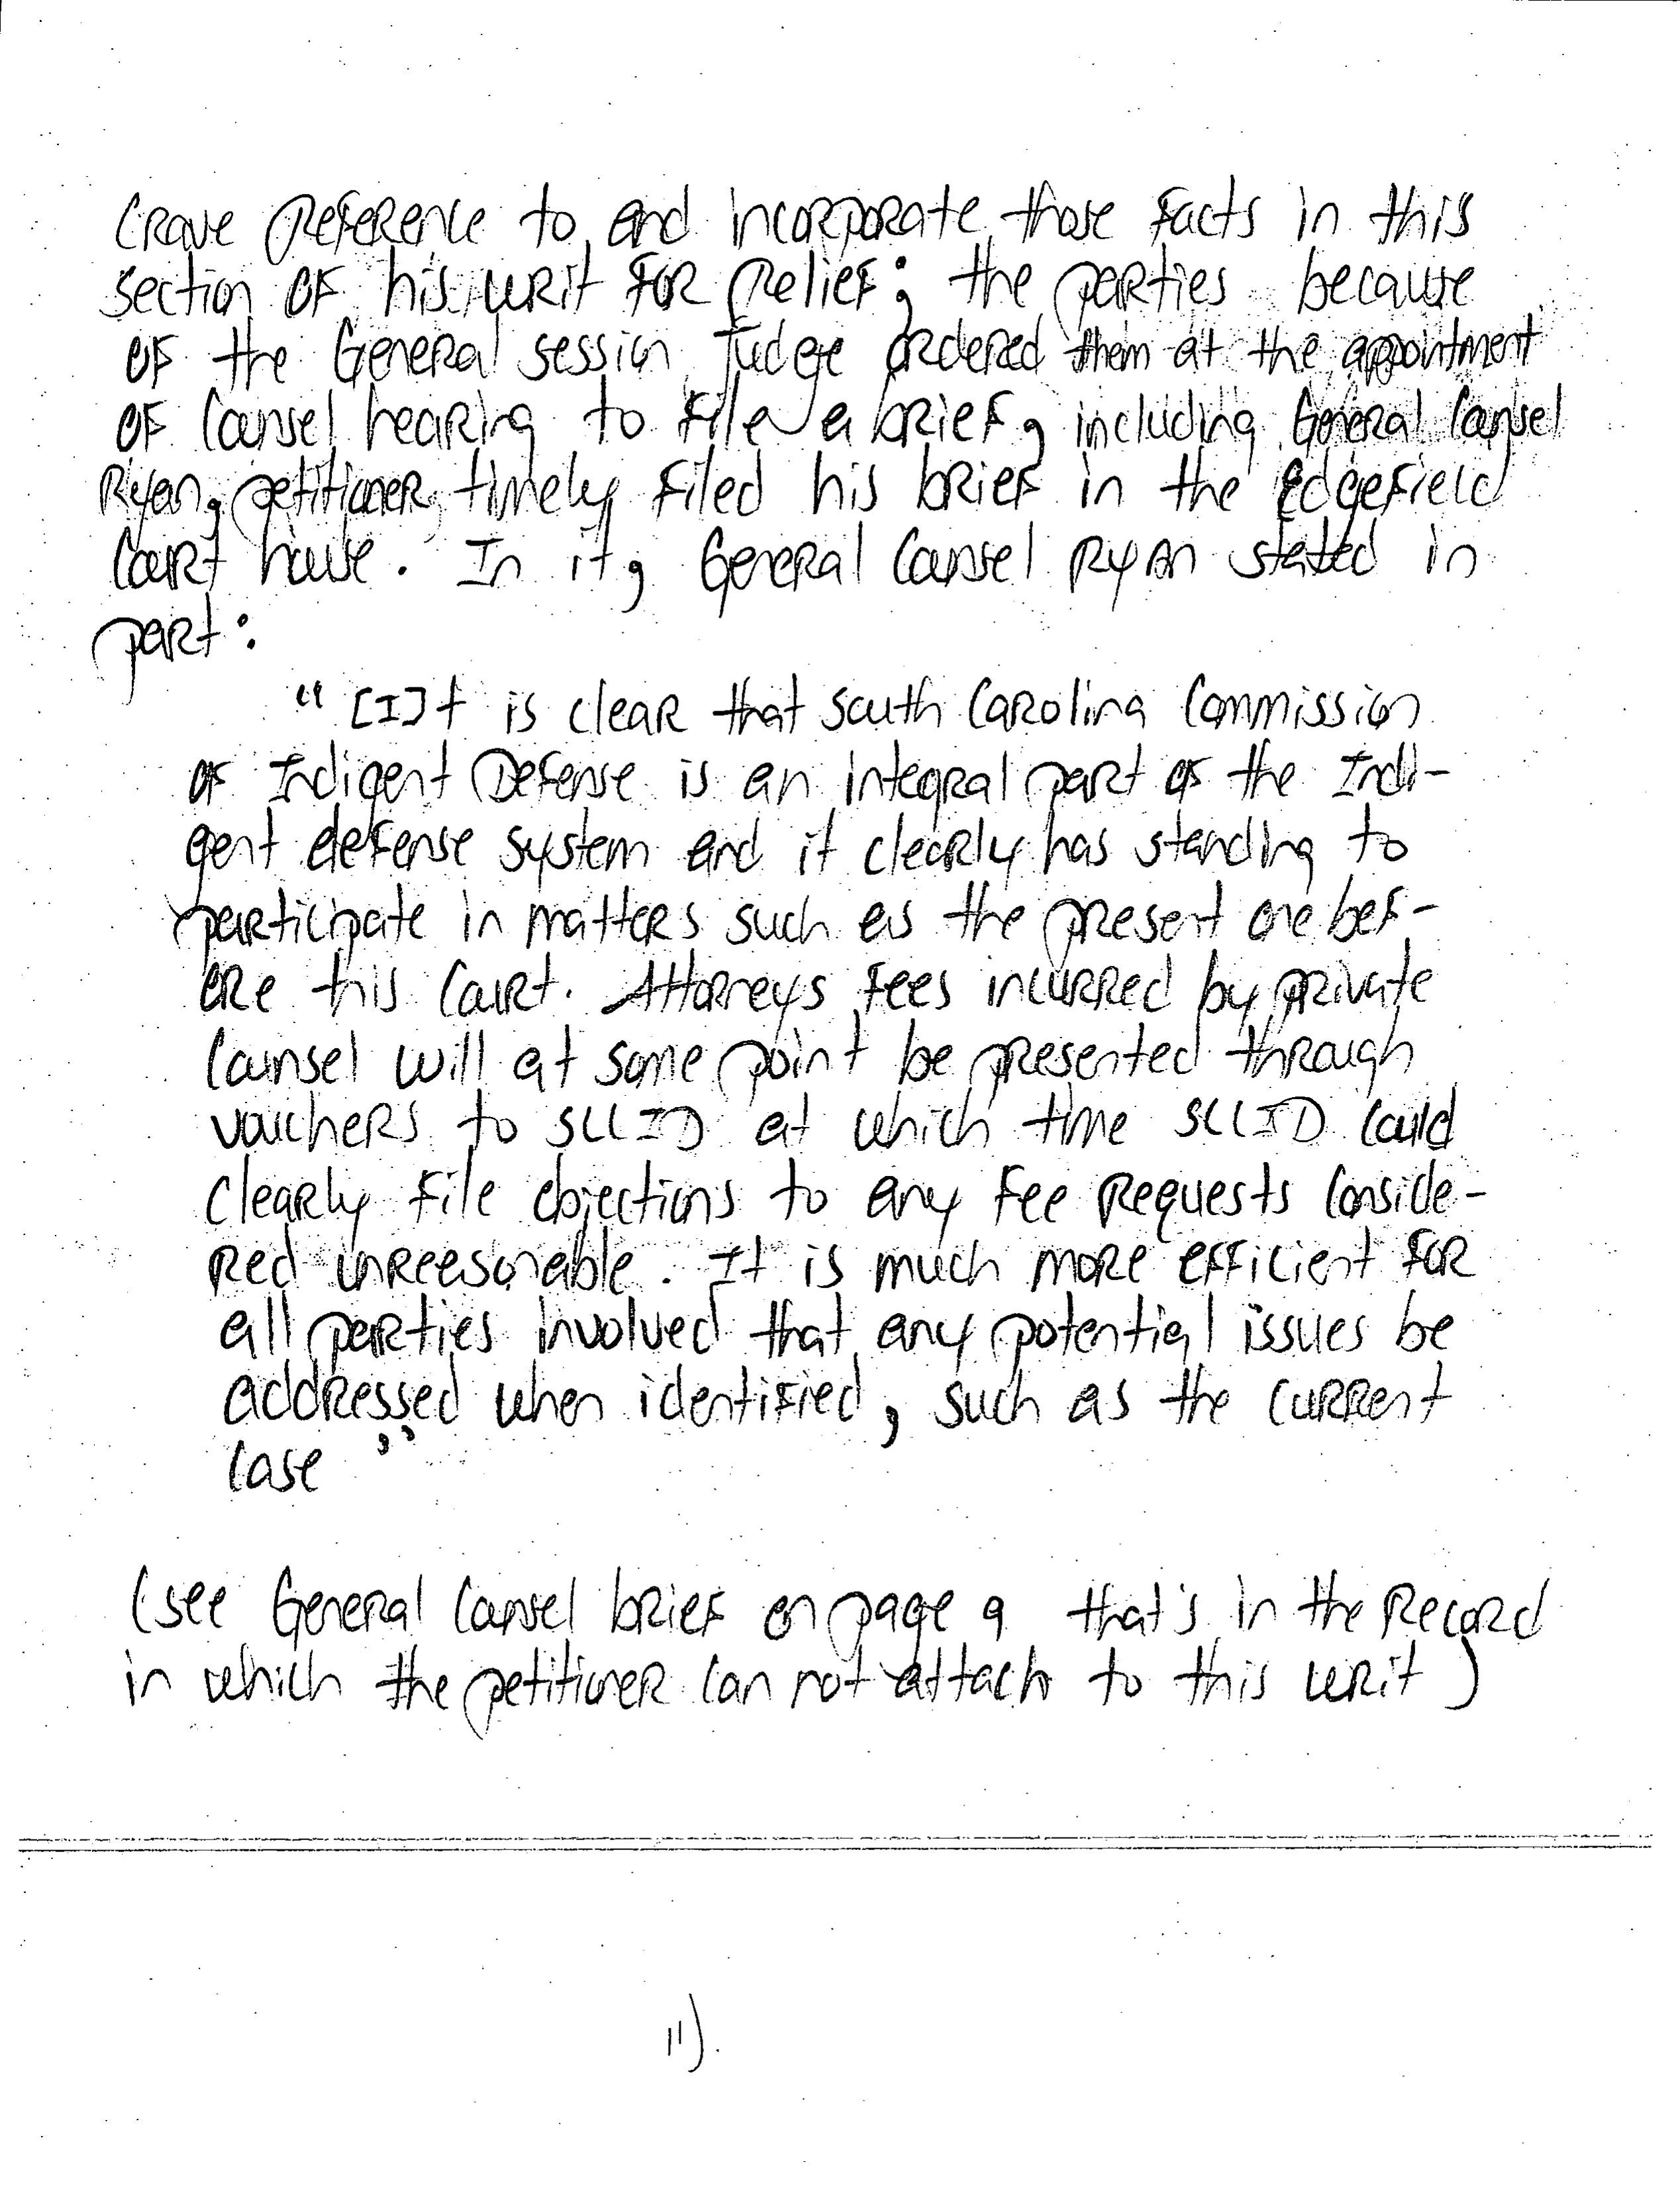 Crave Reference to, and incorporate those facts in this
section of his writ for Relief; the parties because
of the General session Judge ordered them at the appointment
of Counsel hearing to file a brief, including General Counsel
Ryan, petitioner, timely filed his brief in the Edgefield
Court house. In it, General Counsel Ryan stated in
part:
"[I]t is clear that South Carolina Commission
of Indigent Defense is an integral part of the Indi-
gent defense system and it clearly has standing to
participate in matters such as the present one bef-
ore this Court. Attorneys fees incurred by private
Counsel will at some point be presented through
vouchers to SCCID at which time SCCID could
clearly file objections to any fee Requests conside-
red unreasonable. It is much more efficient for
all parties involved that any potential issues be
addressed when identified, such as the current
case"
(see General Counsel brief on page 9 that's in the Record
in which the petitioner can not attach to this writ)
11).